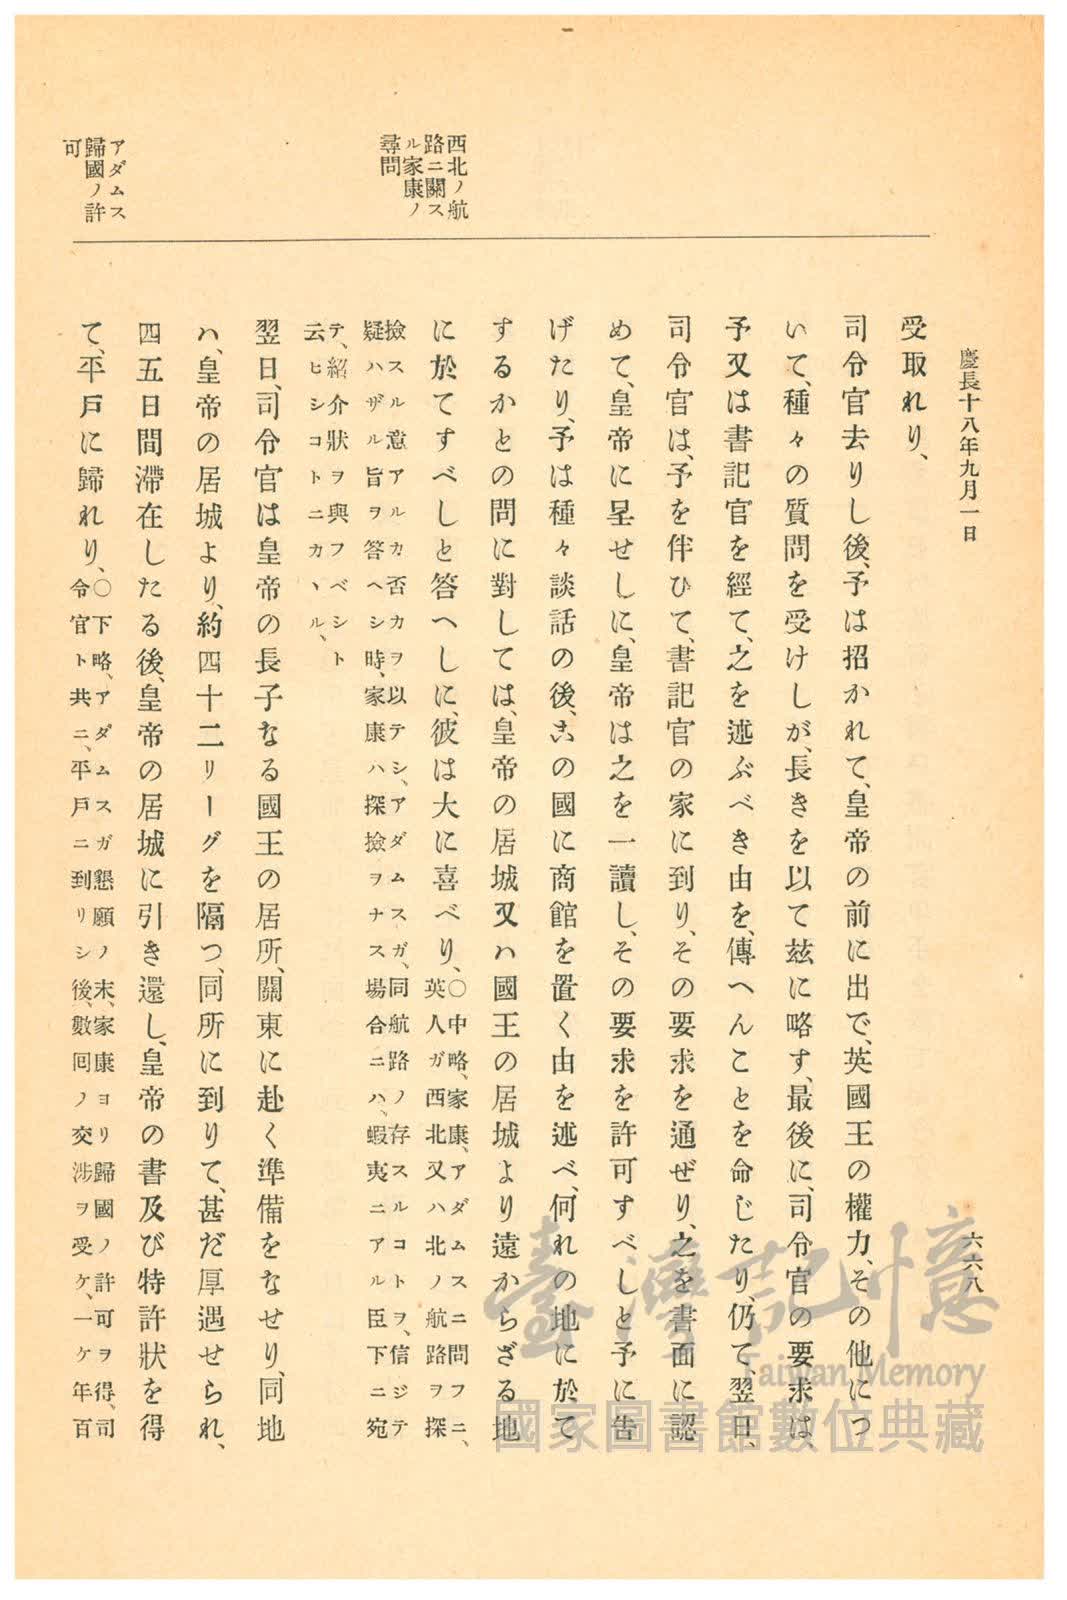 慶長十八年九月一日
六六八
西北ノ航
路ニ關ス
ル家康ノ
尋問
アダムス
歸國ノ許
可
受取れり、
司令官去りし後、予は招かれて、皇帝の前に出で、英國王の權力、その他につ
いて、種々の質問を受けしが、長きを以て玆に略す、最後に、司令官の要求は、
予又は書記官を經て、之を述ぶべき由を、傳へんことを命じたり、仍て、翌日、
司令官は、予を伴ひて、書記官の家に到り、その要求を通ぜり、之を書面に認
めて、皇帝に呈せしに、皇帝は之を一讀し、その要求を許可すべしと予に告
げたり、予は種々談話の後、この國に商館を置く由を述べ、何れの地に於て
するかとの問に對しては、皇帝の居城又ハ國王の居城より遠からざる地
に於てすべしと答へしに、彼は大に喜べり、
〇中略、家康、アダムスニ問フニ、
英人ガ西北又ハ北ノ航路ヲ探
撿スル意アルカ否カヲ以テシ、アダムスガ、同航路ノ存スルコトヲ、信ジテ
疑ハザル旨ヲ答ヘシ時、家康ハ探撿ヲナス場合ニハ、蝦夷ニアル臣下ニ宛
テ、紹介狀ヲ與フベシト
云ヒシコトニカヽル、
翌日、司令官は皇帝の長子なる國王の居所、關東に赴く準備をなせり、同地
ハ、皇帝の居城より、約四十二リーグを隔つ、同所に到りて、甚だ厚遇せられ、
四五日間滯在したる後、皇帝の居城に引き還し、皇帝の書及び特許狀を得
て、平戶に歸れり、
〇下略、アダムスガ懇願ノ末、家康ヨリ歸國ノ許可ヲ得、司
令官ト共ニ、平戶ニ到リシ後、數囘ノ交涉ヲ受ケ、一ケ年百
臺灣記憶
Taiwan Memory
國家圖書館數位典藏